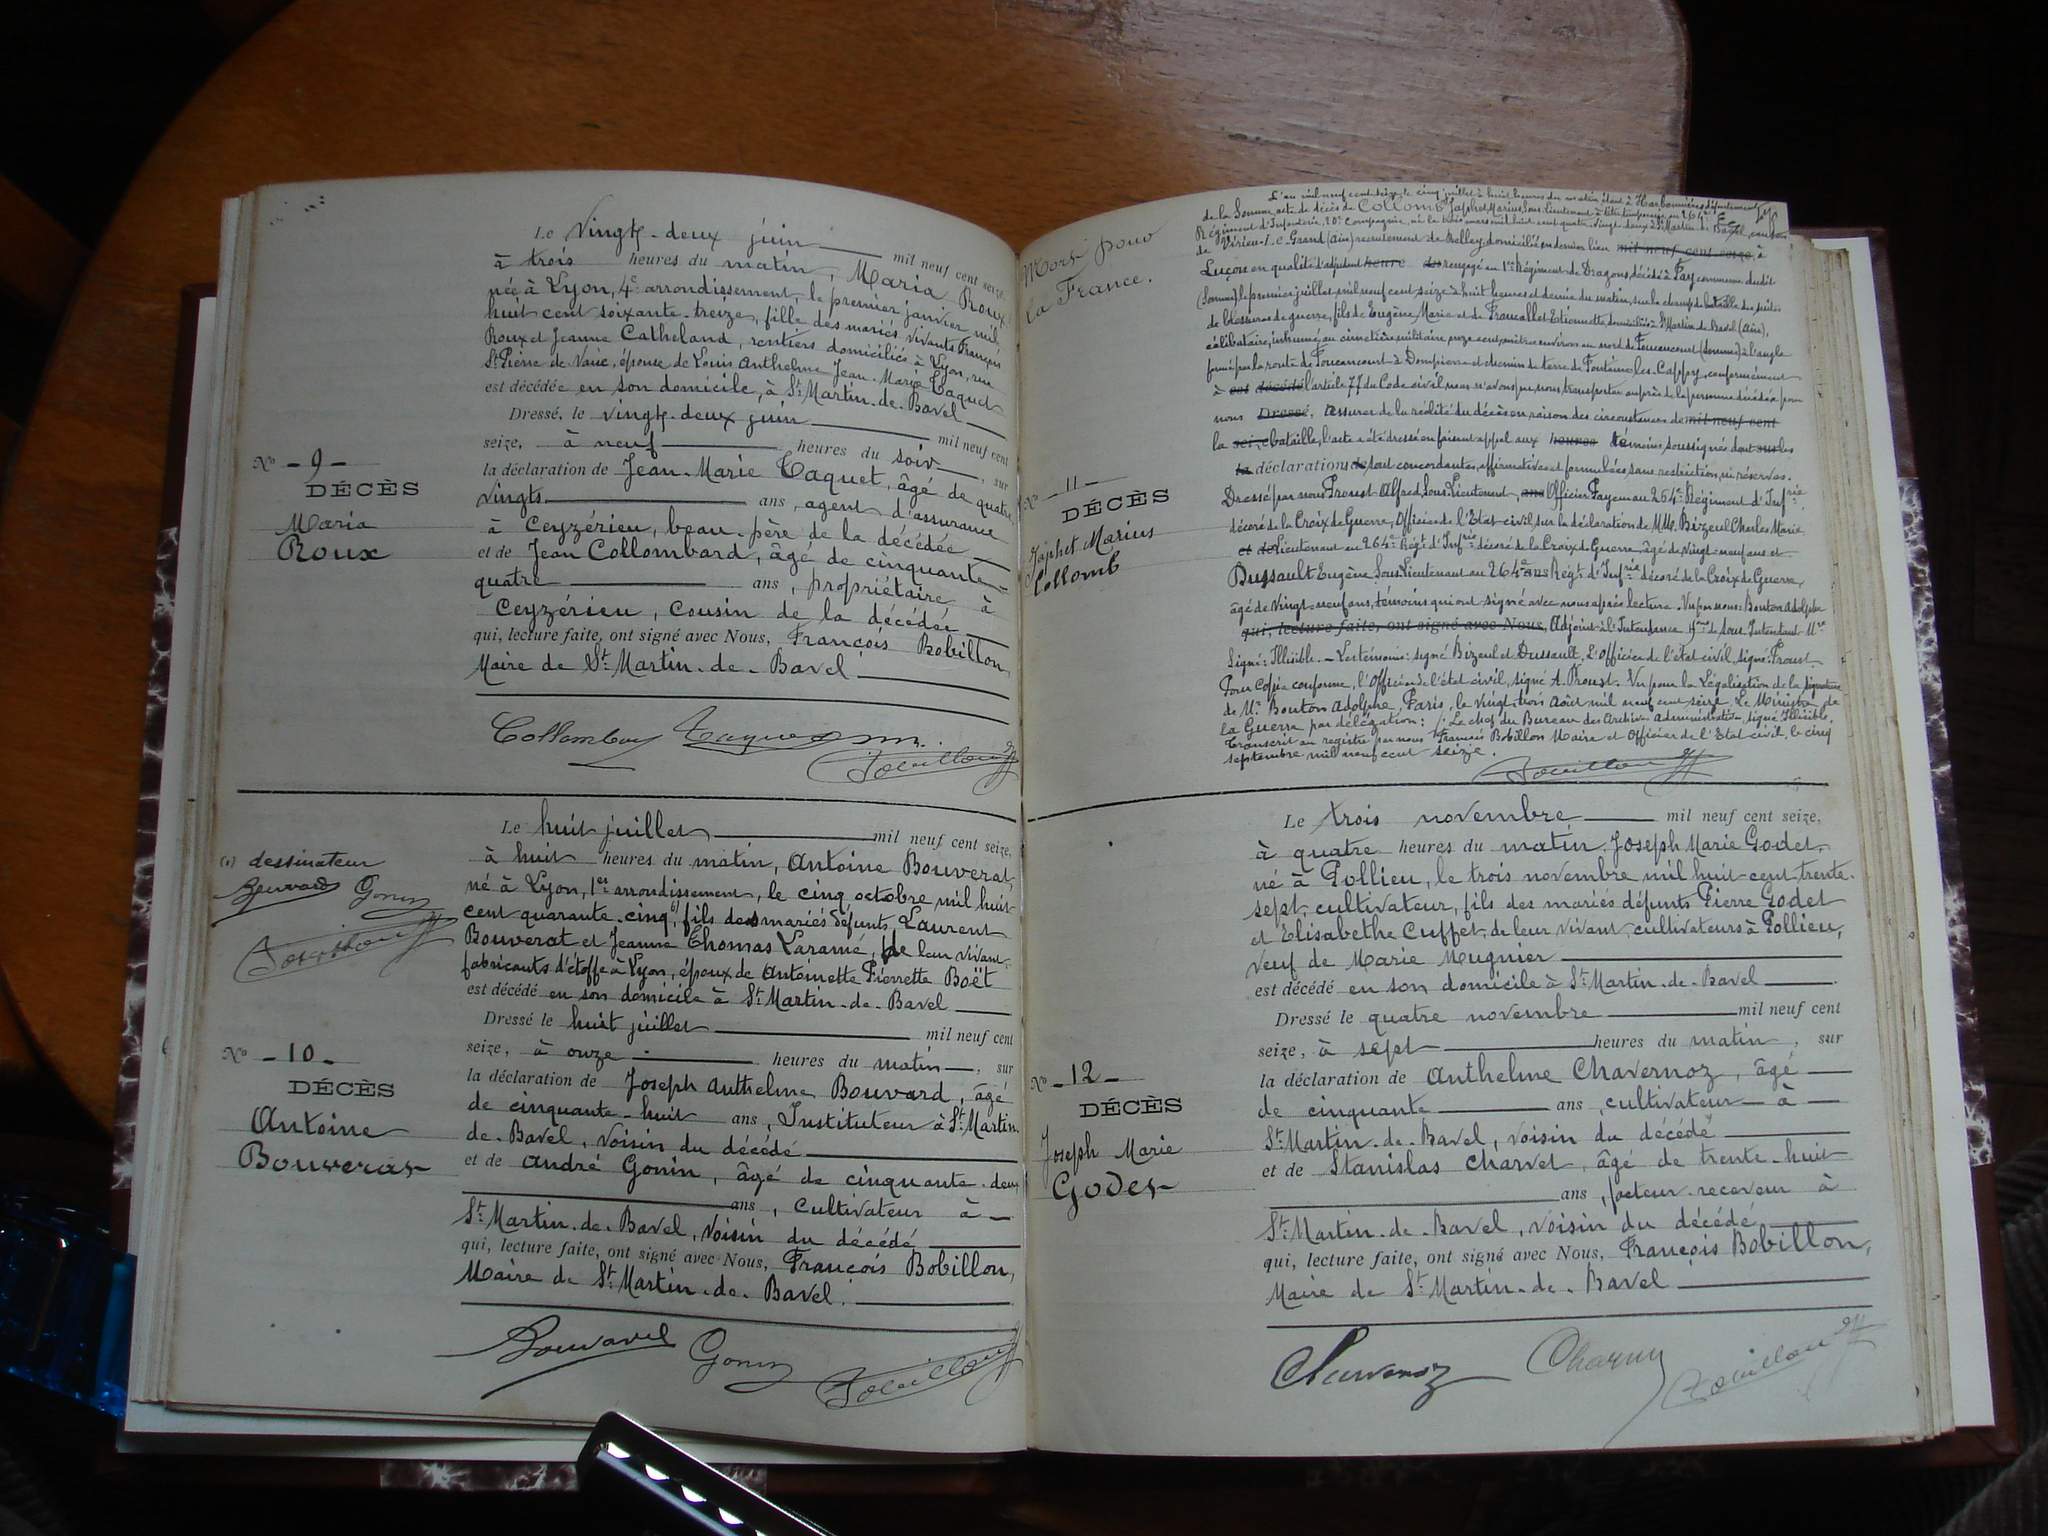 Le Vingt-deux juin mil neuf cent seize,
à trois heures du matin, Maria Roux
née à Lyon, 4e arrondissement, le premier janvier mil
huit cent soixante-treize, fille des mariés vivants François
Roux et Jeanne Catheland, rentiers domiciliés à Lyon, rue
St Pierre de Vaise, épouse de Louis Anthelme Jean-Marie Taquet
est décédée en son domicile, à St Martin-de-Bavel
Dressé, le vingt-deux juin mil neuf cent
seize, à neuf heures du soir, sur
la déclaration de Jean-Marie Taquet, âgé de quatre
vingts ans, agent d'assurance
à Ceyzérieu, beau-père de la décédée
et de Jean Collombard, âgé de cinquante-
quatre ans, propriétaire à
Ceyzérieu, cousin de la décédée
qui, lecture faite, ont signé avec Nous, François Bobillon
Maire de St Martin-de-Bavel
No - 9 -
DÉCÈS
Maria
Roux
Le huit juillet mil neuf cent seize,
à huit heures du matin, Antoine Bouverat,
né à Lyon, 1er arrondissement, le cinq octobre mil huit
cent quarante-cinq, (1) fils des mariés défunts, Laurent
Bouverat et Jeanne Thomas Laramé, de leur vivant
fabricants d'étoffe à Lyon, époux de Antoinette Pierrette Boët
est décédé en son domicile à St Martin-de-Bavel
Dressé le huit juillet mil neuf cent
seize, à onze heures du matin, sur
la déclaration de Joseph Anthelme Bouvard, âgé
de cinquante-huit ans, Instituteur à St Martin-
de-Bavel, voisin du décédé
et de André Gonin, âgé de cinquante-deux
ans, cultivateur à
St Martin-de-Bavel, voisin du décédé
qui, lecture faite, ont signé avec Nous, François Bobillon,
Maire de St Martin-de-Bavel.
Bouvard Gonin Bobillon
(1) dessinateur
Bouvard Gonin
Bobillon
No - 10 -
DÉCÈS
Antoine
Bouverat
Mort pour
la France.
No - 11 -
DÉCÈS
Japhet Marius
Collomb
L'an mil neuf cent seize, le cinq juillet à huit heures du matin, étant à Harbonnières, département
de la Somme, acte de décès de Collomb Japhet Marius, Sous-Lieutenant à titre temporaire au 264e
Régiment d'Infanterie, 20e Compagnie, né le trois mars mil huit cent quatre-vingt-deux à St Martin de Bavel, canton
de Virieu-Le-Grand (Ain) recrutement de Belley, domicilié en dernier lieu mil neuf cent seize, à
Luçon en qualité d'adjudant heure du rengagé au 1er Régiment de Dragons, décédé à Fay commune dudit
(Somme), le premier juillet mil neuf cent seize à huit heures et demie du matin, sur le champ de bataille des suites
de blessures de guerre, fils de Eugène, Marie et de Etiennette, domiciliés à St Martin de Bavel (Ain),
célibataire, inhumé au cimetière militaire onze cents mètres environ au nord de Foucaucourt (Somme) à l'angle
formé par la route de Foucaucourt à Dompierre et chemin de terre de Fontaine-les-Cappy, conformément
à est décédé l'article 77 du Code civil nous n'avons pu nous transporter auprès de la personne décédée pour
nous Dressé, assurer de la réalité du décès en raison des circonstances de mil neuf cent
la seize bataille, l'acte a été dressé en faisant appel aux heures témoins soussignés dont sur les
la déclarations de sont concordantes, affirmatives et formulées, sans restriction, ni réserves.
Dressé par nous Proust Alfred, Sous-Lieutenant, ans Officier Payeur au 264e Régiment d'Infrie
décoré de la Croix de Guerre, Officier de l'Etat-civil, sur la déclaration de MM. Bizeul Charles Marie
et de Lieutenant au 264e Régt d'Infrie décoré de la Croix de Guerre, âgé de vingt-neuf ans et
Dussault Eugène, Sous-Lieutenant au 264e ans Régt d'Infrie décoré de la Croix de Guerre,
âgé de vingt-neuf ans, témoins qui ont signé avec nous après lecture. Vu par nous: Bouton Adolphe
qui, lecture faite, ont signé avec Nous, Adjoint à l'Intendance
Signé: Illisible. - Les témoins: signé Bizeul et Dussault, L'Officier de l'état civil, signé: Proust
Pour Copie conforme, l'Officier de l'état civil, signé A. Proust. Vu pour la Légalisation de la signature
de Mr Bouton Adolphe, Paris, le vingt-trois Août mil neuf cent seize. Le Ministre de
la Guerre par délégation: Le chef du Bureau des Archives Administratives, signé Illisible.
Transcrit au registre par nous François Bobillon Maire et Officier de l'Etat civil, le cinq
septembre mil neuf cent seize.
Bobillon
Le trois novembre mil neuf cent seize,
à quatre heures du matin, Joseph Marie Godet,
né à Pollieu, le trois novembre mil huit cent trente-
sept, cultivateur, fils des mariés défunts Pierre Godet
et Elisabethe Cuffet, de leur vivant, cultivateurs à Pollieu,
veuf de Marie Mugnier
est décédé en son domicile à St Martin-de-Bavel
Dressé le quatre novembre mil neuf cent
seize, à sept heures du matin, sur
la déclaration de Anthelme Chavernoz, âgé
de cinquante ans, cultivateur à
St Martin-de-Bavel, voisin du décédé
et de Stanislas Charvet, âgé de trente-huit
ans, facteur-receveur à
St Martin-de-Bavel, voisin du décédé
qui, lecture faite, ont signé avec Nous, François Bobillon,
Maire de St Martin-de-Bavel
Chavernoz Bobillon
No - 12 -
DÉCÈS
Joseph Marie
Godet